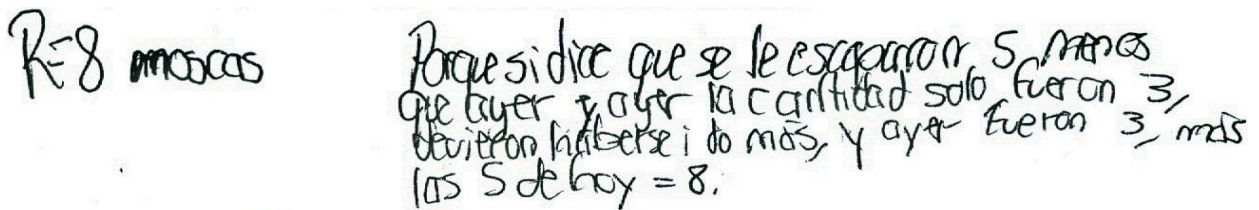 R=8 moscas
Porque si dice que se le escaparon 5 menos
que ayer y ayer la cantidad solo fueron 3,
devieron haberse ido más, y ayer fueron 3, más
las 5 de hoy = 8.